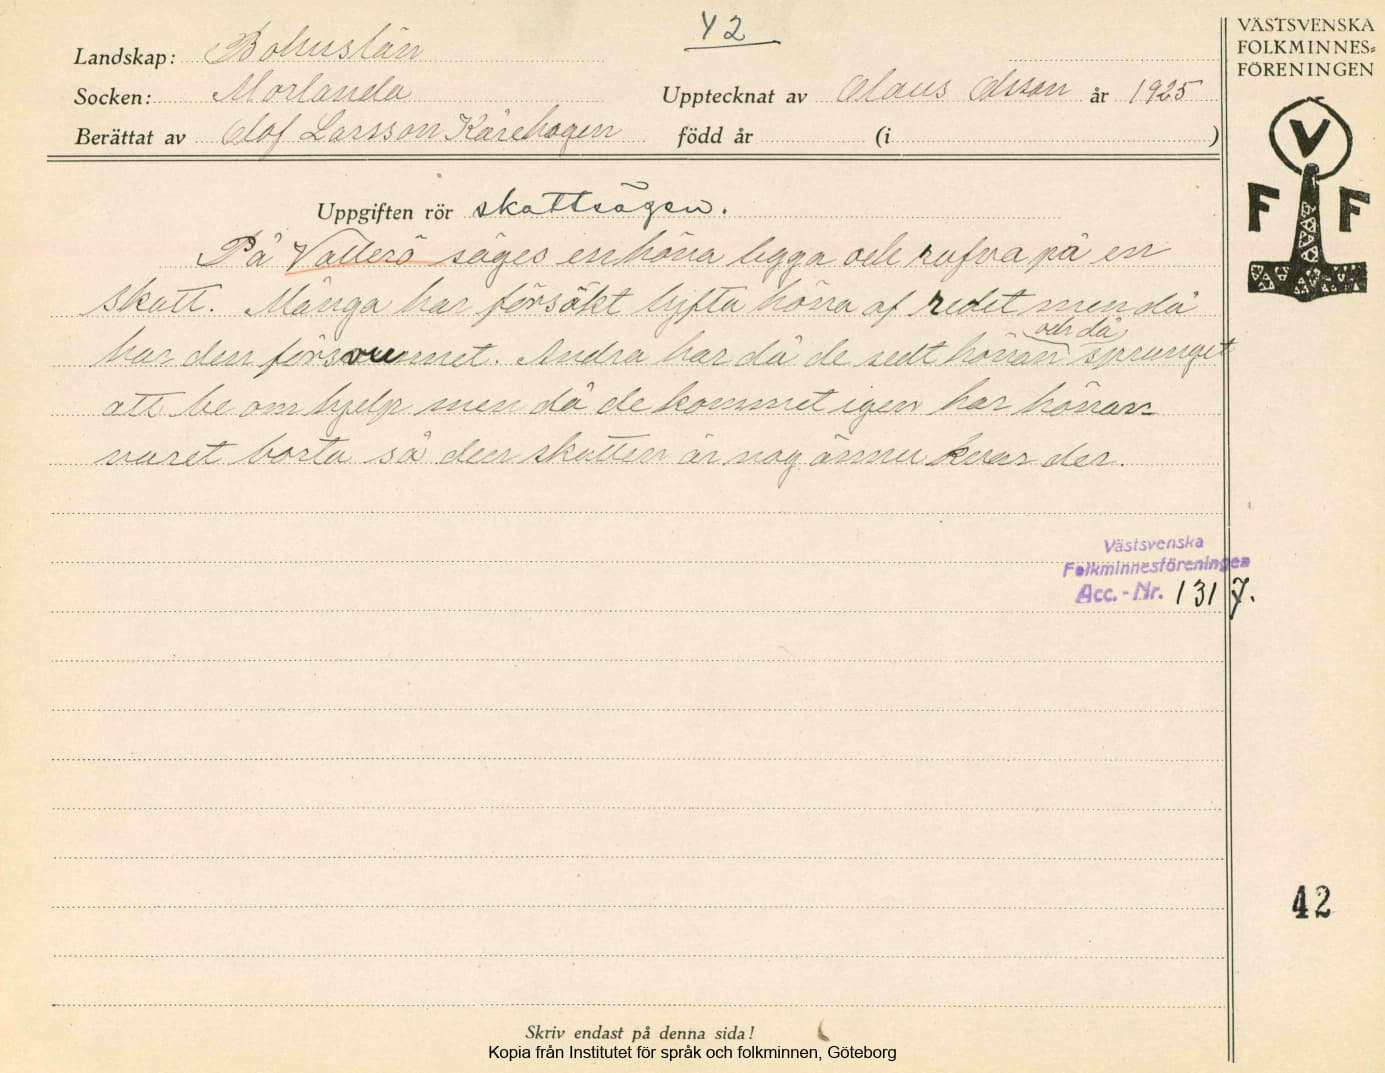 42
Landskap: Bohuslän
Socken: Morlanda
Upptecknat av Olaus Olsson år 1925
Berättat av Olof Larsson Kärehogen född år (i )
VÄSTSVENSKA
FOLKMINNES=
FÖRENINGEN
V
F F
Uppgiften rör skattsägen.
På Vallerö säges en höna ligga och rufva på en
skatt. Många har försökt lyfta höna af redet men då
har den försvunnet. Andra har då de sedt hönan och då sprunget
att be om hjelp men då de kommet igen har hönan
varet borta så den skatten är nog ännu kvar der.
Västsvenska
Folkminnesföreningen
Acc.-Nr. 1317.
42
Skriv endast på denna sida!
Kopia från Institutet för språk och folkminnen, Göteborg